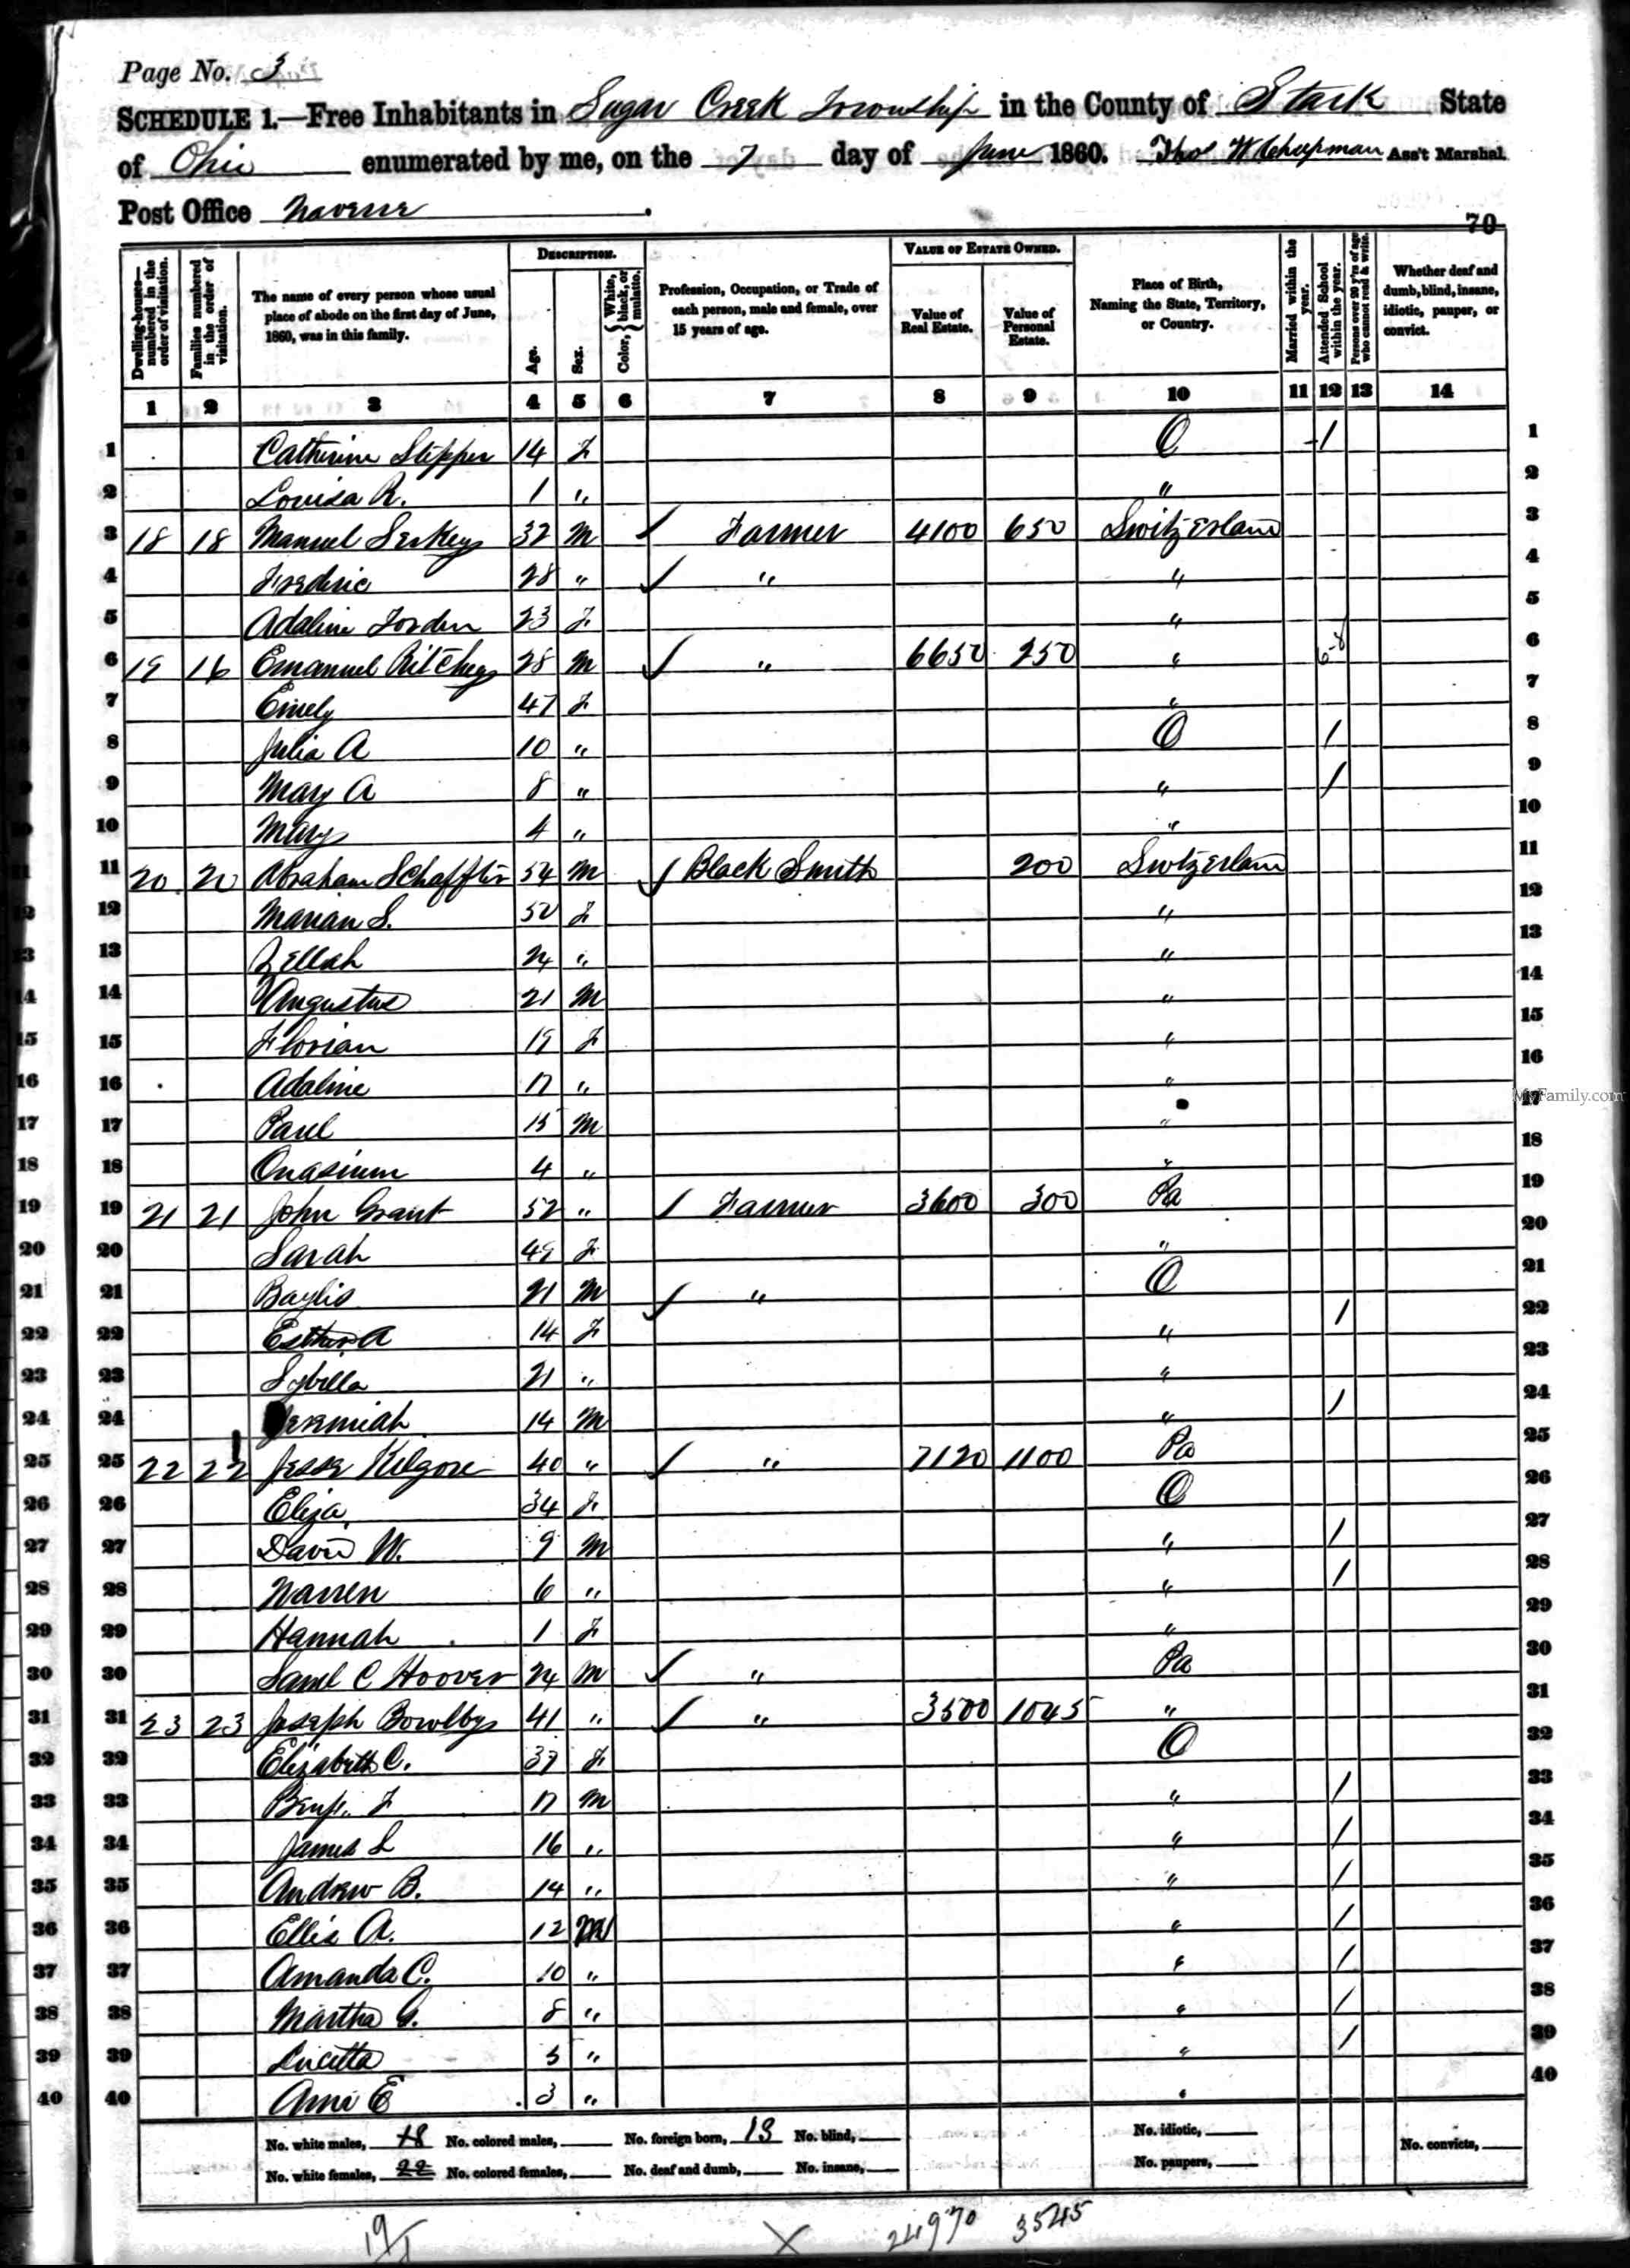 Page No. 3
SCHEDULE 1.—Free Inhabitants in Sugar Creek Township in the County of Stark State
of Ohio enumerated by me, on the 7 day of June 1860. Thos W Chapman Ass't Marshal
Post Office Navarre
70
Dwelling-houses—numbered in the order of visitation.
Families numbered in the order of visitation.
The name of every person whose usual place of abode on the first day of June, 1860, was in this family.
DESCRIPTION.
Age.
Sex.
Color, { White, black, or mulatto.
Profession, Occupation, or Trade of each person, male and female, over 15 years of age.
VALUE OF ESTATE OWNED.
Value of Real Estate.
Value of Personal Estate.
Place of Birth, Naming the State, Territory, or Country.
Married within the year.
Attended School within the year.
Persons over 20 y'rs of age who cannot read & write.
Whether deaf and dumb, blind, insane, idiotic, pauper, or convict.
1 2 3 4 5 6 7 8 9 10 11 12 13 14
1 Catherine Stepper 14 F O 1 1
2 Louisa R. 1 " " 2
3 18 18 Manuel 32 M Farmer 4100 650 Switzerland 3
4 Frederic 28 " " " 4
5 Adaline Jorden 23 F " 5
6 19 16 Emanuel Ritchey 28 M " 6650 250 " 6
7 Emely 47 F " 7
8 Julia A 10 " O 1 8
9 Mary A 8 " " 1 9
10 Mary 4 " " 10
11 20 20 Abraham 54 M Black Smith 200 Switzerland 11
12 Marian S. 50 F " 12
13 Zellah 24 " " 13
14 Augustus 21 M " 14
15 Florian 19 F " 15
16 Adaline 17 " " 16
17 Paul 15 M " 17
18 4 " " 18
19 21 21 John Grant 52 " Farmer 3600 300 Pa 19
20 Sarah 49 F " 20
21 Baylis 21 M " O 21
22 Esther A 14 F " 1 22
23 Sybilla 21 " " 23
24 Jeremiah 14 M " 1 24
25 22 22 Jesse Kilgore 40 " " 7120 1100 Pa 25
26 Eliza 34 F O 26
27 David W. 9 M " 1 27
28 Warren 6 " " 1 28
29 Hannah 1 F " 29
30 Saml C Hoover 24 M " Pa 30
31 23 23 Joseph Bowlby 41 " " 3500 1045 " 31
32 Elizabeth C. 37 F O 32
33 Benj. F 17 M " 1 33
34 James L 16 " " 1 34
35 Andrew B. 14 " " 1 35
36 Ellis A. 12 M " 1 36
37 Amanda C. 10 " " 1 37
38 Martha G. 8 " " 1 38
39 Lucetta 5 " " 1 39
40 Ann E 3 " " 40
No. white males, 18 No. colored males, No. foreign born, 13 No. blind, No. idiotic, No. convicts,
No. white females, 22 No. colored females, No. deaf and dumb, No. insane, No. paupers,
19 24970 3545
MyFamily.com